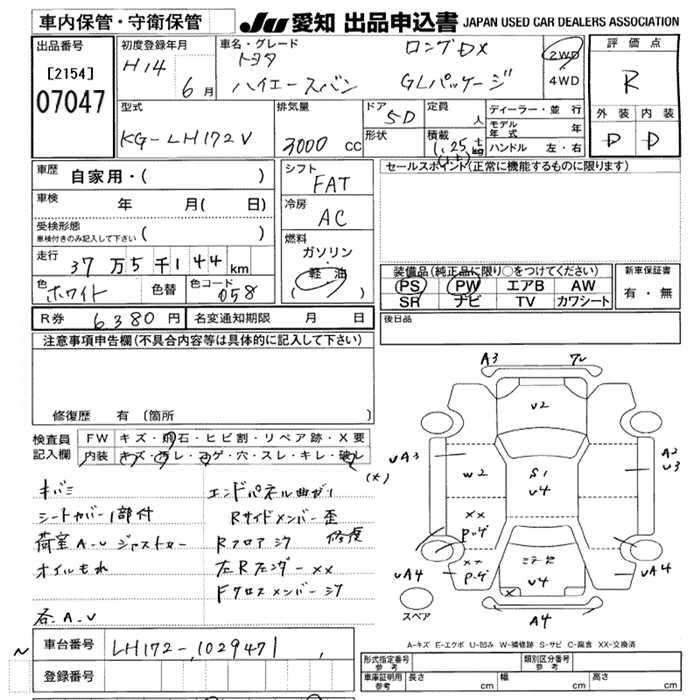 車内保管・守衛保管
JU 愛知 出品申込書 JAPAN USED CAR DEALERS ASSOCIATION
出品番号
[2154]
07047
初度登録年月
H14 6月
車名・グレード
トヨタ ロングDX
ハイエースバン GLパッケージ
2WD
・
4WD
評価点
R
外装 内装
D D
型式
KG-LH172V
排気量
3000 CC
ドア 5D
形状
定員 人
積載
ディーラー・並行
モデル年式 年
ハンドル 左・右
車歴 自家用・( )
車検 年 月( 日)
受検形態
車検付きのみ記入して下さい ( )
走行 37万5千144km
色 ホワイト 色替 色コード 058
シフト FAT
冷房 AC
燃料
ガソリン
・
軽油
( )
セールスポイント(正常に機能するものに限ります)
装備品(純正品に限り○をつけてください)
PS PW エアB AW
SR ナビ TV カワシート
新車保証書
有・無
R券 6380円 名変通知期限 月 日
後日品
注意事項申告欄(不具合内容等は具体的に記入して下さい)
修復歴 有 〔箇所 〕
検査員記入欄
FW キズ・飛石・ヒビ割・リペア跡・X要
内装 キズ・汚レ・コゲ・穴・スレ・キレ・破レ
(大)
キバミ
シートカバー1部付
荷室A-U
オイルもれ
各A.U
エンドパネル曲ガリ
Rサイドメンバー歪 修復
Rフロアサグ
左Rフェンダーxx
Fクロスメンバーサグ
A3
U2
UA3
A2
U3
W2
S1
U4
xx
xx
UA4
U4
x
UA4
A4
スペア
A-キズ E-エクボ U-凹み W-補修跡 S-サビ C-腐食 XX-交換済
車台番号 LH172-1029471
登録番号
形式指定番号 参考
類別区分番号 参考
車庫証明用 参考 長さ cm 幅 cm 高さ cm